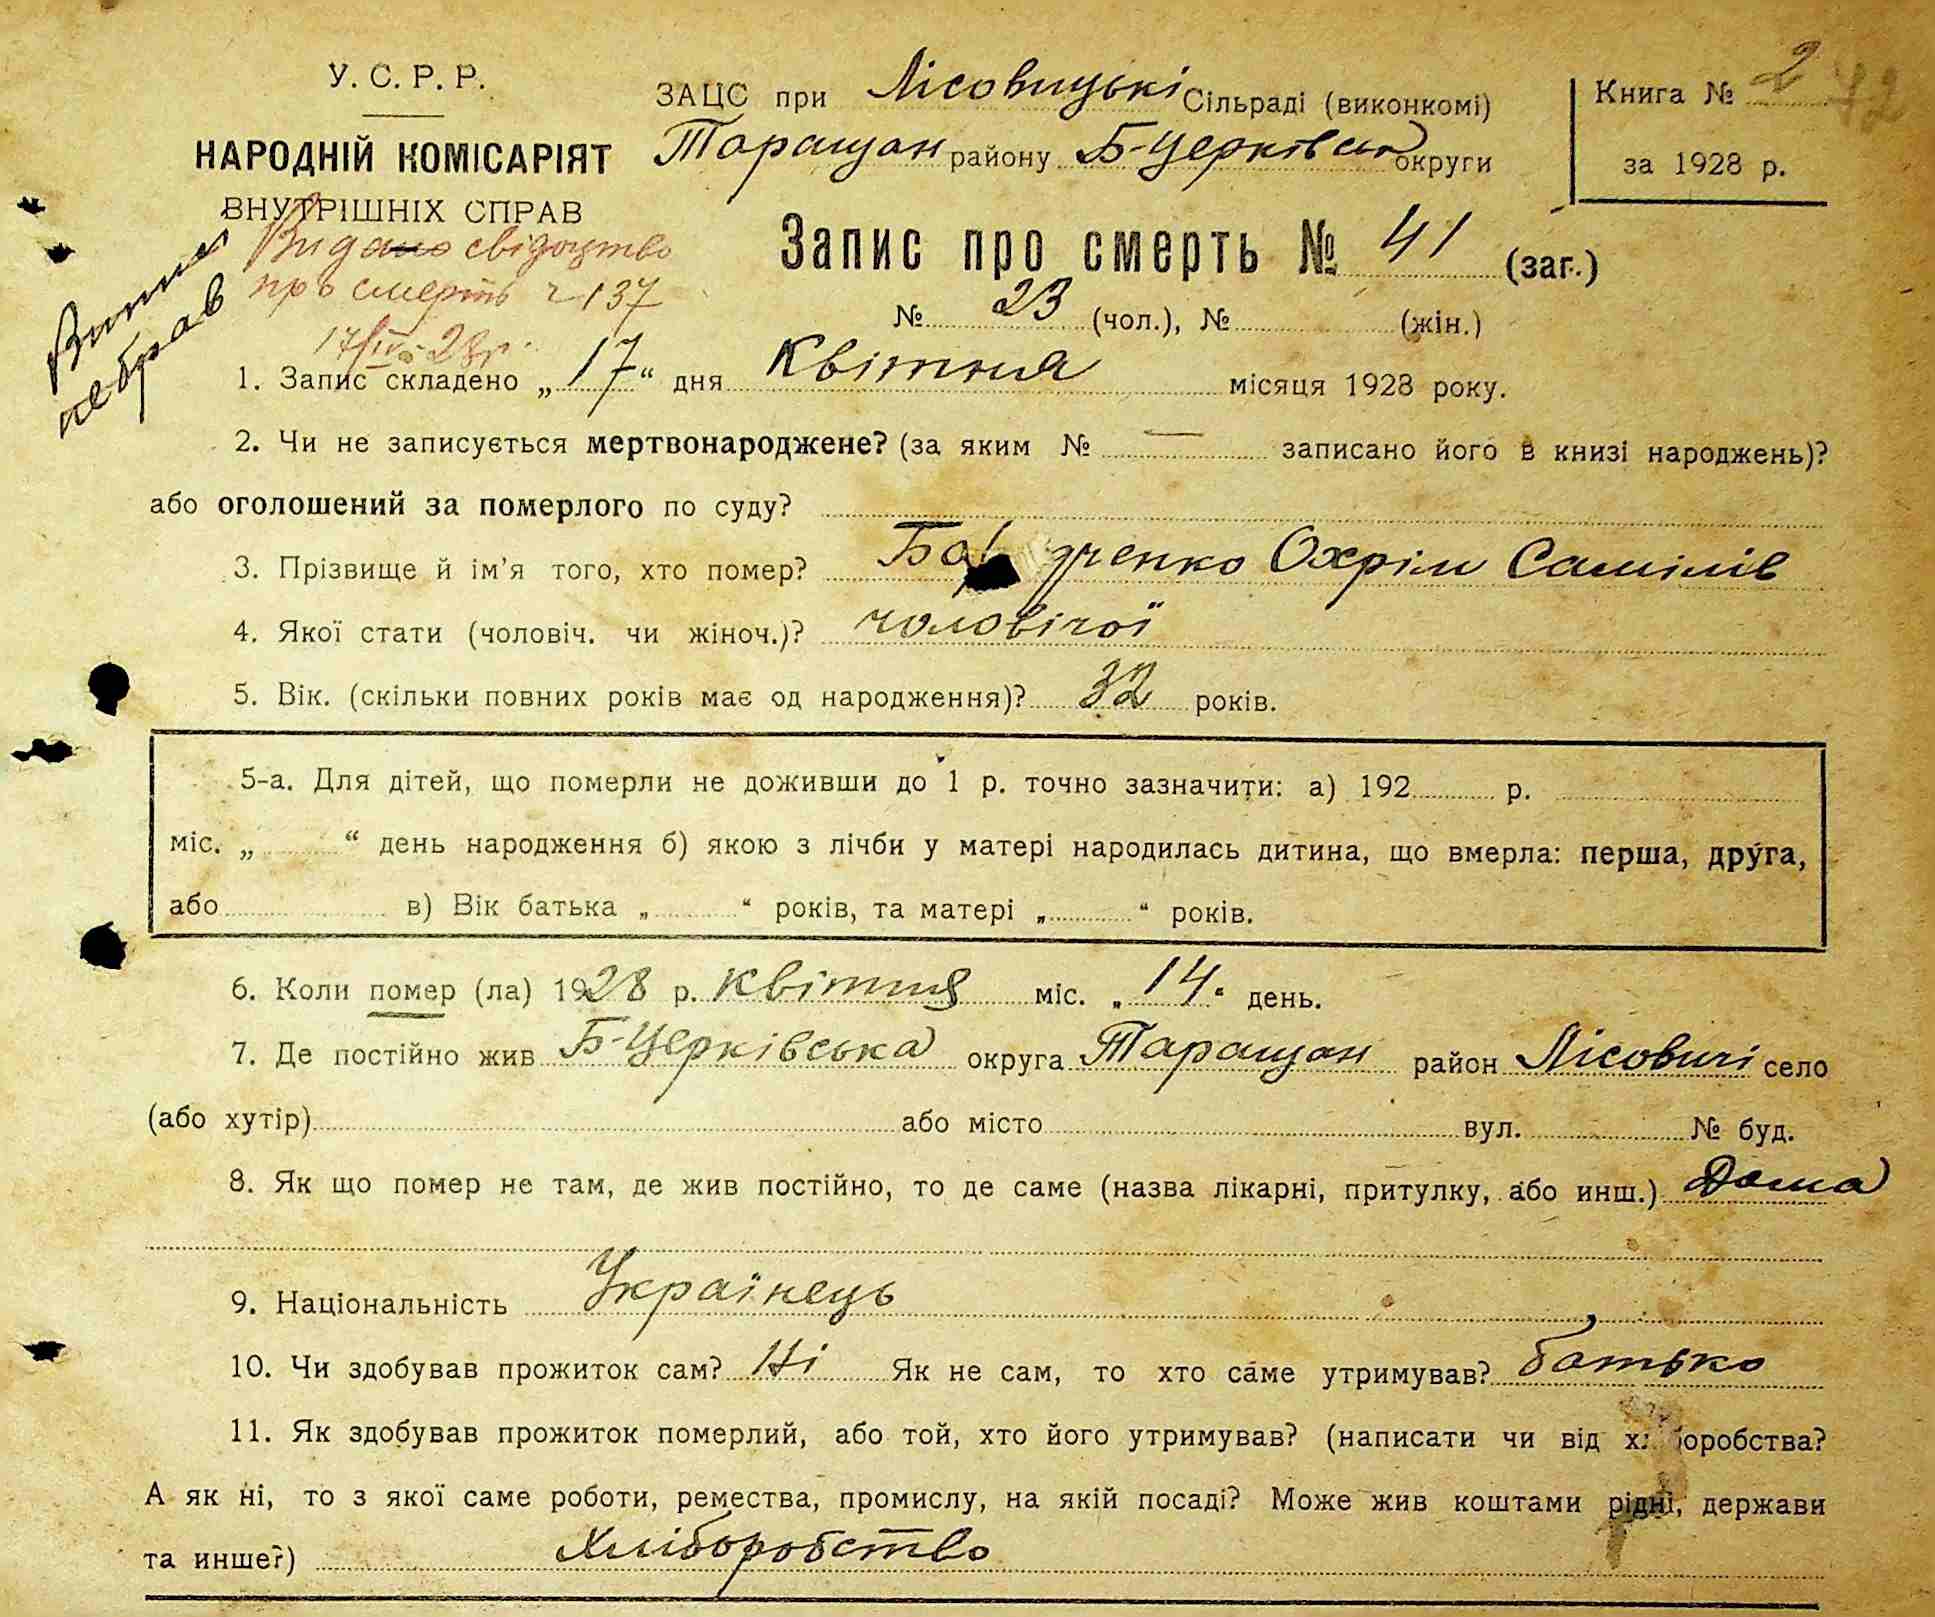 У. С. Р. Р.
НАРОДНІЙ КОМІСАРІЯТ
ВНУТРІШНІХ СПРАВ
ЗАЦС при Лісовицькі Сільраді (виконкомі)
Таращан району Б-Церківсько округи
Книга № 2
за 1928 р.
72
Видано свідоцтво
про смерть ч 137
17/IV-28 р.
не брав
Запис про смерть № 41 (заг.)
№ 23 (чол.), № (жін.)
1. Запис складено „17“ дня Квітня місяця 1928 року.
2. Чи не записується мертвонароджене? (за яким № — записано його в книзі народжень)?
або оголошений за померлого по суду?
3. Прізвище й ім’я того, хто помер? Охрім Самілів
4. Якої стати (чоловіч. чи жіноч.)? чоловічої
5. Вік. (скільки повних років має од народження)? 32 років.
5-а. Для дітей, що померли не доживши до 1 р. точно зазначити: а) 192 р.
міс. „ “ день народження б) якою з лічби у матері народилась дитина, що вмерла: перша, друга,
або в) Вік батька „ “ років, та матері „ “ років.
6. Коли помер (ла) 1928 р. квітня міс. „14“ день.
7. Де постійно жив Б-Церківська округа Таращан район Лісовичі село
(або хутір) або місто вул. № буд.
8. Як що помер не там, де жив постійно, то де саме (назва лікарні, притулку, або инш.) Дома
9. Національність Українець
10. Чи здобував прожиток сам? Ні Як не сам, то хто саме утримував? батько
11. Як здобував прожиток померлий, або той, хто його утримував? (написати чи від хліборобства?
А як ні, то з якої саме роботи, ремества, промислу, на якій посаді? Може жив коштами рідні, держави
та инше?) Хліборобство